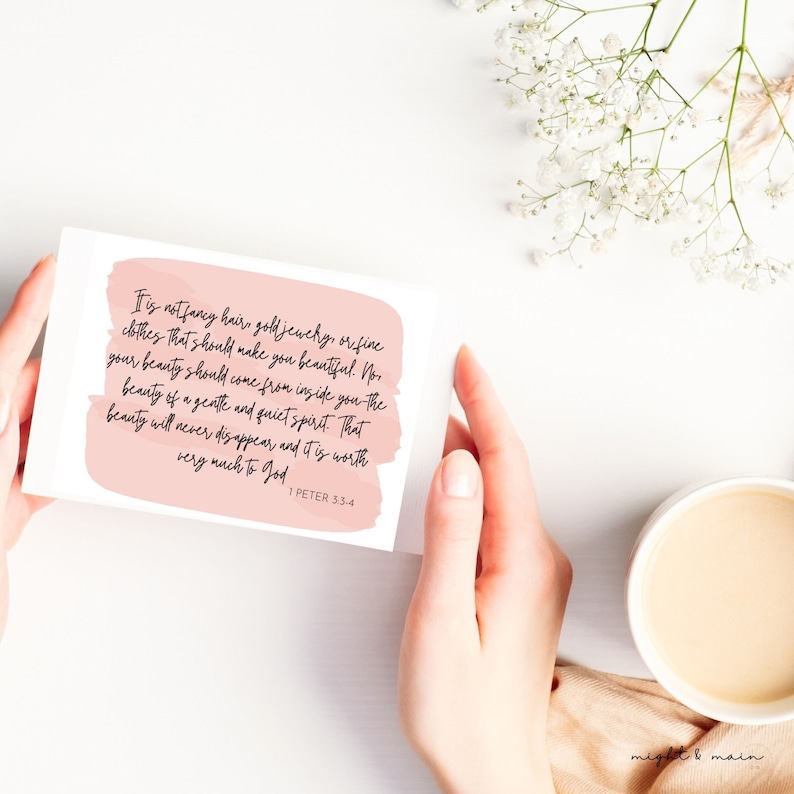 It is not fancy hair, gold jewelry, or fine
clothes that should make you beautiful. No,
your beauty should come from inside you-the
beauty of a gentle and quiet spirit. That
beauty will never disappear and it is worth
very much to God
1 PETER 3:3-4
might & main